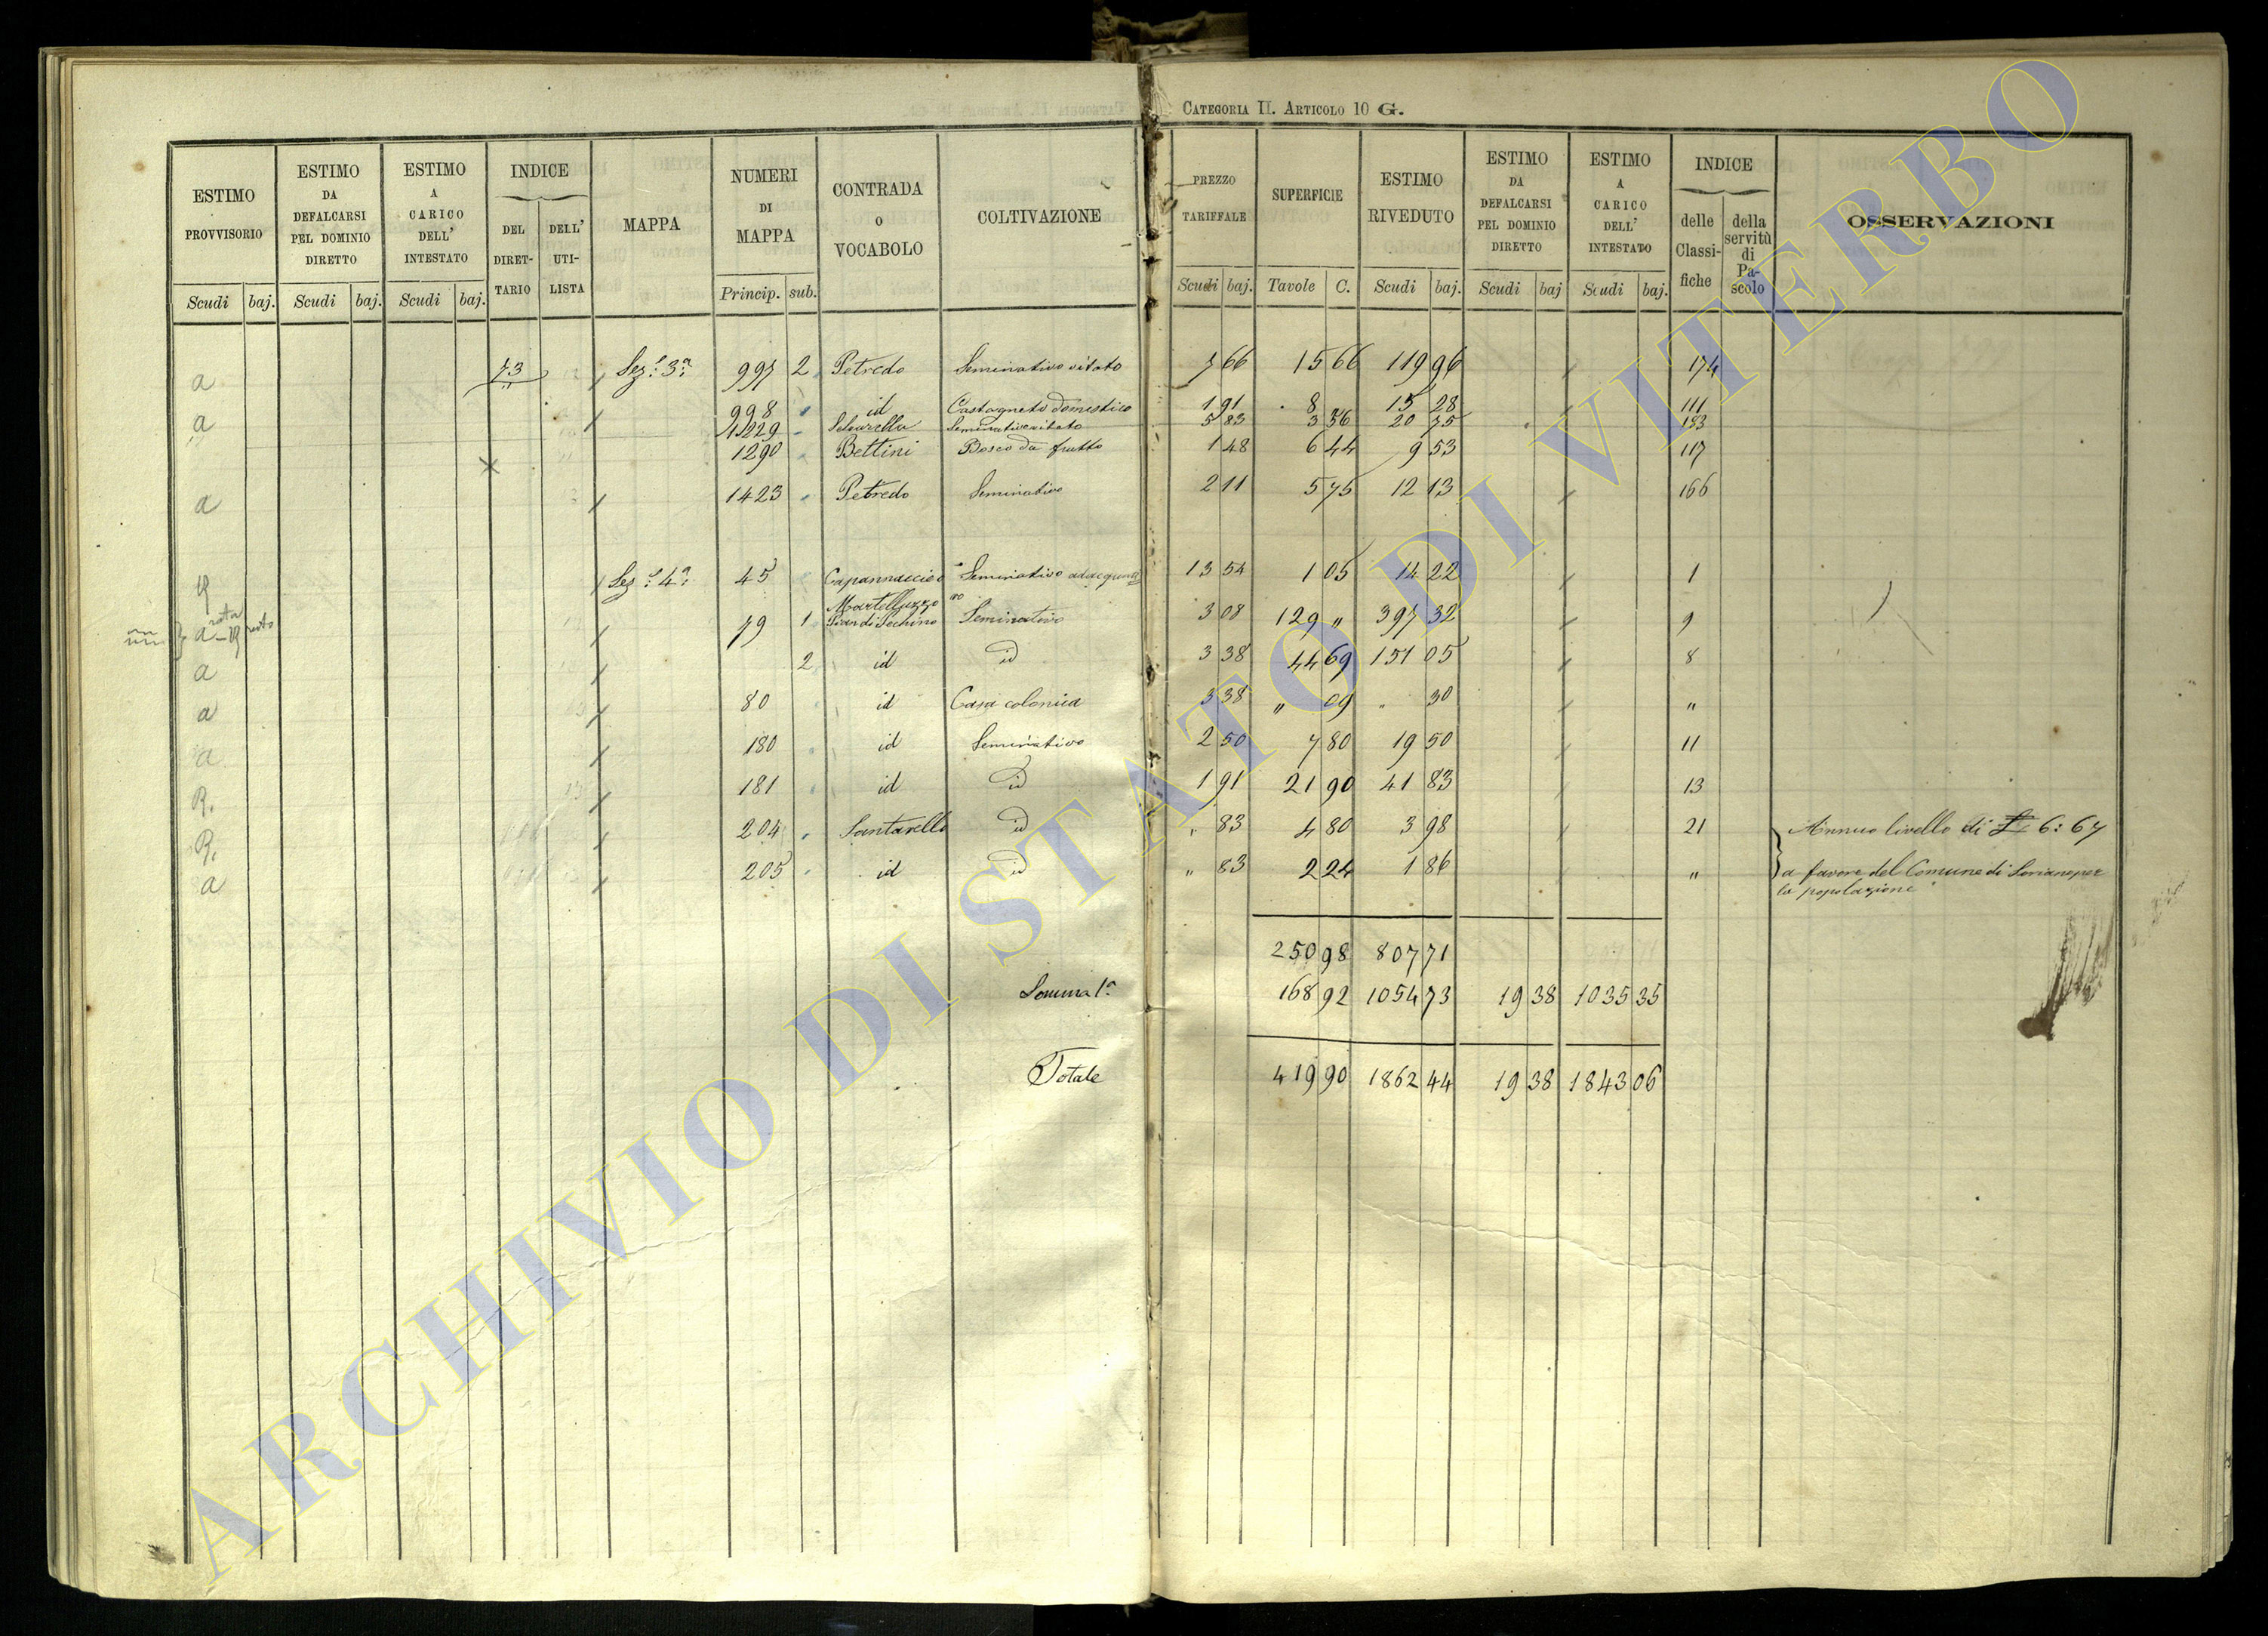 CATEGORIA II. ARTICOLO 10 G.
ESTIMO PROVVISORIO Scudi baj.
ESTIMO DA DEFALCARSI PEL DOMINIO DIRETTO Scudi baj.
ESTIMO A CARICO DELL' INTESTATO Scudi baj.
INDICE DEL DIRETTARIO DELL' UTILISTA
MAPPA
NUMERI DI MAPPA Princip. sub.
CONTRADA O VOCABOLO
COLTIVAZIONE
PREZZO TARIFFALE Scudi baj.
SUPERFICIE Tavole C.
ESTIMO RIVEDUTO Scudi baj.
ESTIMO DA DEFALCARSI PEL DOMINIO DIRETTO Scudi baj
ESTIMO A CARICO DELL' INTESTATO Scudi baj.
INDICE delle Classifiche della servitù di Pascolo
OSSERVAZIONI
a 73 Sez.e 3a 997 2 Petredo Seminativo vitato 7 66 15 66 119 96 174
a 998 id Castagneto domestico 1 91 8 15 28 111
1229 Seminativo vitato 5 83 3 56 20 75 183
1290 Bettini Bosco da frutto 1 48 6 44 9 53 117
a 1423 Petredo Seminativo 2 11 5 75 12 13 166
Sez.e 4a 45 Capannaccie Seminativo 13 54 1 05 14 22 1
a 79 1 Martelluzzo Seminativo 3 08 129 " 397 32 9
a 2 id id 3 38 44 69 151 05 8
a 80 id Casa colonica 3 38 " 09 " 30 "
a 180 id Seminativo 2 50 7 80 19 50 11
R. 181 id id 1 91 21 90 41 83 13
R. 204 Santarello id " 83 4 80 3 98 21 Annuo livello di £ 6:67
a 205 id id " 83 2 24 1 86 " a favore del Comune di Soriano per
la popolazione
250 98 807 71
Somma 1a 168 92 1054 73 19 38 1035 35
Totale 419 90 1862 44 19 38 1843 06
ARCHIVIO DI STATO DI VITERBO